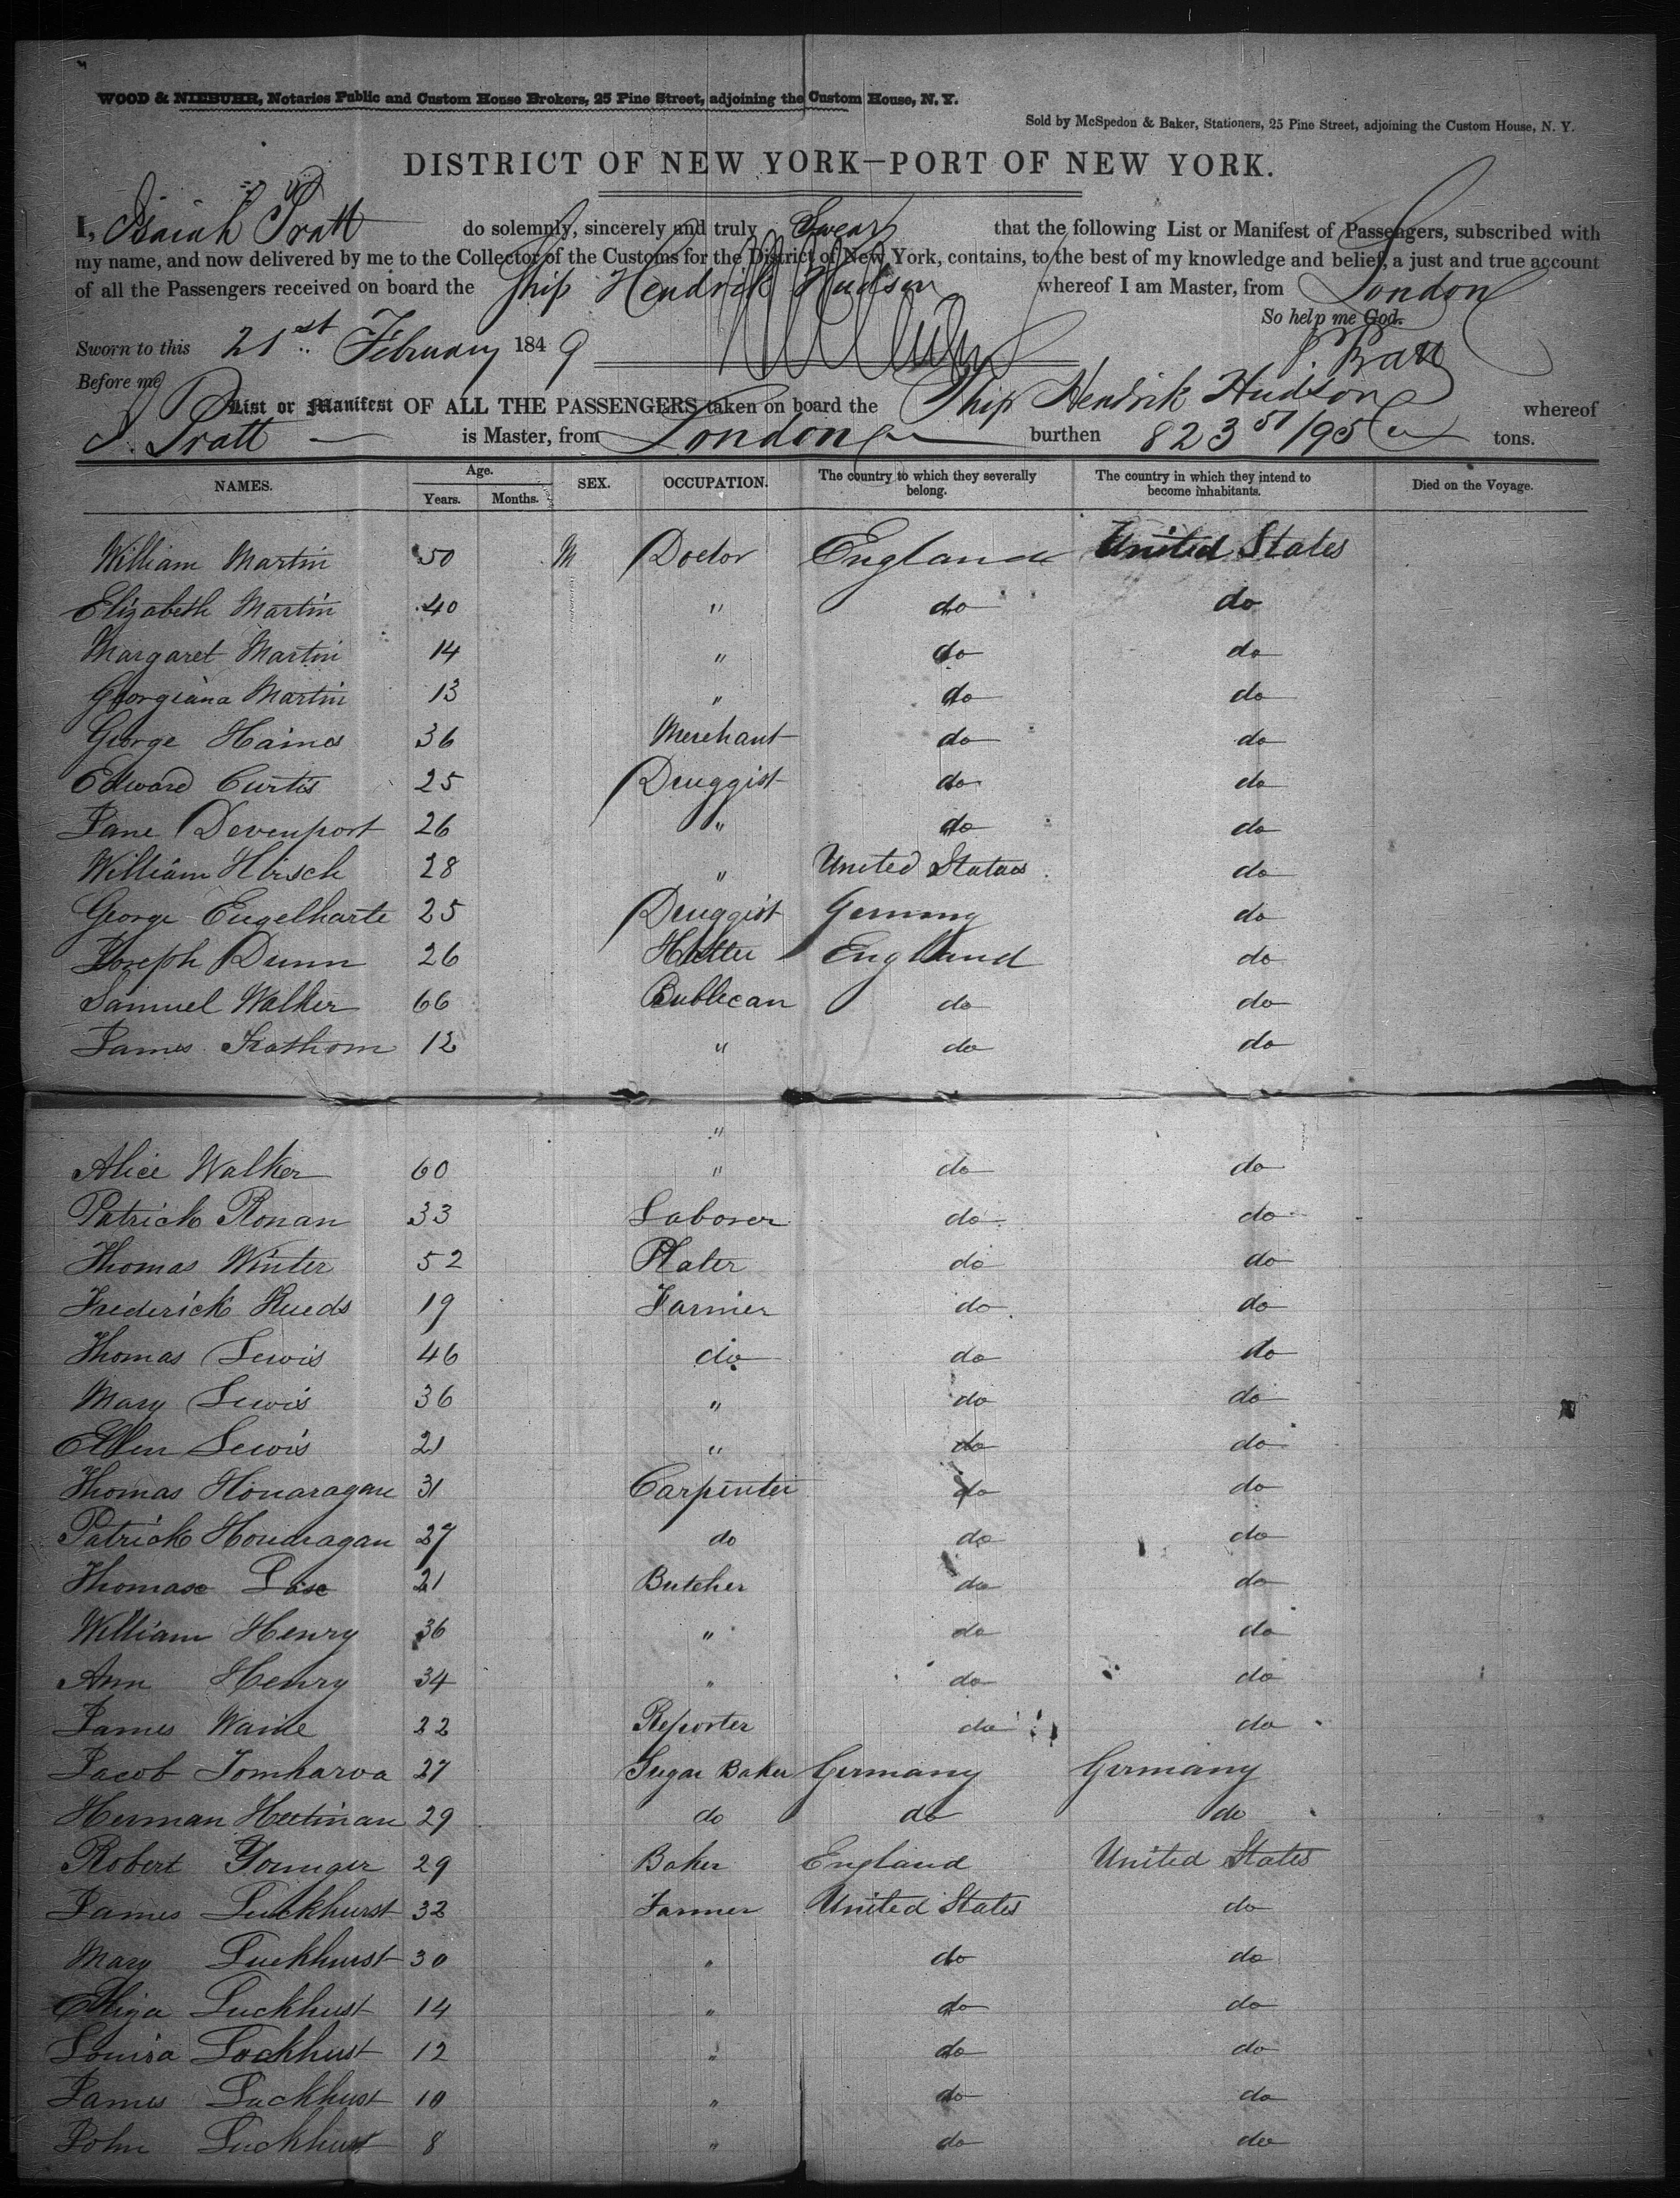 WOOD & NIEBUHR, Notaries Public and Custom House Brokers, 25 Pine Street, adjoining the Custom House, N. Y.
Sold by McSpedon & Baker, Stationers, 25 Pine Street, adjoining the Custom House, N. Y.
DISTRICT OF NEW YORK—PORT OF NEW YORK.
I, Isaiah Pratt do solemnly, sincerely and truly Swear that the following List or Manifest of Passengers, subscribed with
my name, and now delivered by me to the Collector of the Customs for the District of New York, contains, to the best of my knowledge and belief, a just and true account
of all the Passengers received on board the Ship Hendrik Hudson whereof I am Master, from London
So help me God.
Sworn to this 21st February 1849 I. Pratt
Before me
List or Manifest OF ALL THE PASSENGERS taken on board the Ship Hendrik Hudson whereof
I. Pratt is Master, from London burthen 823 51/95 tons.
NAMES. Age. Years. Months. SEX. OCCUPATION. The country to which they severally belong. The country in which they intend to become inhabitants. Died on the Voyage.
William Martin 50 M Doctor England United States
Elizabeth Martin 40 " do do
Margaret Martin 14 " do do
Georgiana Martin 13 " do do
George Haines 36 Merchant do do
Edward Curtis 25 Druggist do do
Jane Devenport 26 " do do
William Hirsch 28 " United States do
George Engelharte 25 Druggist Germny do
Joseph Dunn 26 Hatter England do
Samuel Walker 66 Publican do do
James 12 " do do
"
Alice Walker 60 " do do
Patrick Ronan 33 Laborer do do
Thomas Winter 52 Plater do do
Frederick 19 Farmer do do
Thomas Lewis 46 do do do
Mary Lewis 36 " do do
Ellen Lewis 21 " do do
Thomas Honaragan 31 Carpenter do do
Patrick Houdragan 27 do do do
Thomas 21 Butcher do do
William Henry 36 " do do
Ann Henry 34 " do do
James 22 Reporter do do
Jacob Tomharva 27 Sugar Baker Germany Germany
Herman 29 do do do
Robert Younger 29 Baker England United States
James Luckhurst 32 Farmer United States do
Mary Luckhurst 30 " do do
Eliza Luckhust 14 " do do
Louisa Lockhust 12 " do do
James Luckhust 10 " do do
John Luckhust 8 " do do